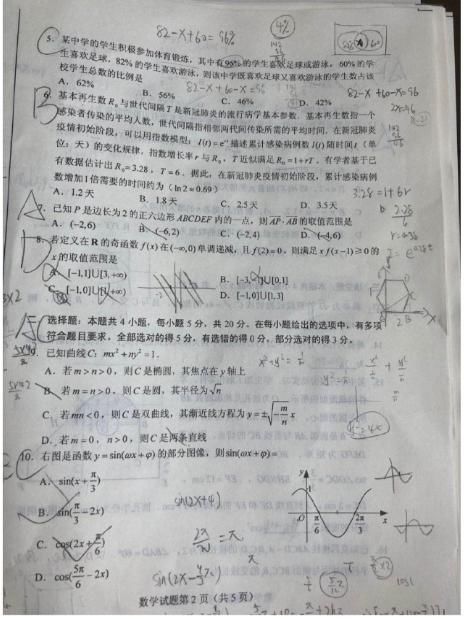 82-X+60=96%
4%
5. 某中学的学生积极参加体育锻炼，其中有96%的学生喜欢足球或游泳，60%的学
生喜欢足球，82%的学生喜欢游泳，则该中学既喜欢足球又喜欢游泳的学生数占该
校学生总数的比例是
82-X+60-X=96
A. 62% B. 56% C. 46% D. 42%
B
6. 基本再生数R₀与世代间隔T是新冠肺炎的流行病学基本参数．基本再生数指一个
感染者传染的平均人数，世代间隔指相邻两代间传染所需的平均时间．在新冠肺炎
疫情初始阶段，可以用指数模型：I(t)=e^{rt}描述累计感染病例数I(t)随时间t（单
位：天）的变化规律，指数增长率r与R₀，T近似满足R₀=1+rT．有学者基于已
有数据估计出R₀=3.28，T=6．据此，在新冠肺炎疫情初始阶段，累计感染病例
数增加1倍需要的时间约为（ln2≈0.69）
3.28=1+6r
A. 1.2天 B. 1.8天 C. 2.5天 D. 3.5天
A
7. 已知P是边长为2的正六边形ABCDEF内的一点，则AP·AB的取值范围是
A. (-2,6) B. (-6,2) C. (-2,4) D. (-4,6)
8. 若定义在R的奇函数f(x)在(-∞,0)单调递减，且f(2)=0，则满足xf(x-1)≥0的
x的取值范围是
A. [-1,1]∪[3,+∞) B. [-3,-1]∪[0,1]
C. [-1,0]∪[1,+∞) D. [-1,0]∪[1,3]
选择题：本题共4小题，每小题5分，共20分．在每小题给出的选项中，有多项
符合题目要求，全部选对的得5分，有选错的得0分，部分选对的得3分．
已知曲线C：mx²+ny²=1．
A. 若m>n>0，则C是椭圆，其焦点在y轴上
B. 若m=n>0，则C是圆，其半径为√n
C. 若mn<0，则C是双曲线，其渐近线方程为y=±√(-m/n)x
D. 若m=0，n>0，则C是两条直线
10. 右图是函数y=sin(ωx+φ)的部分图像，则sin(ωx+φ)=
A. sin(x+π/3)
B. sin(π/3-2x)
sin(2x+φ)
C. cos(2x+π/6)
D. cos(5π/6-2x)
y
1
O
π/6
2π/3
x
数学试题第2页（共5页）